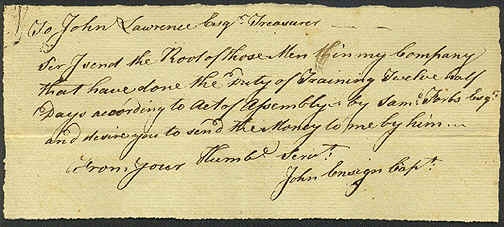 To John Lawrence Esqr. Treasurer
Ser I send the Rool of those Men in my Company
that have done the Duty of Training Twelve half
Days according to Act of Assembly by Saml. Forbs Esqr.
and desire you to send the Money to me by him
from your Humbl Servt.
John Ensign Capt.